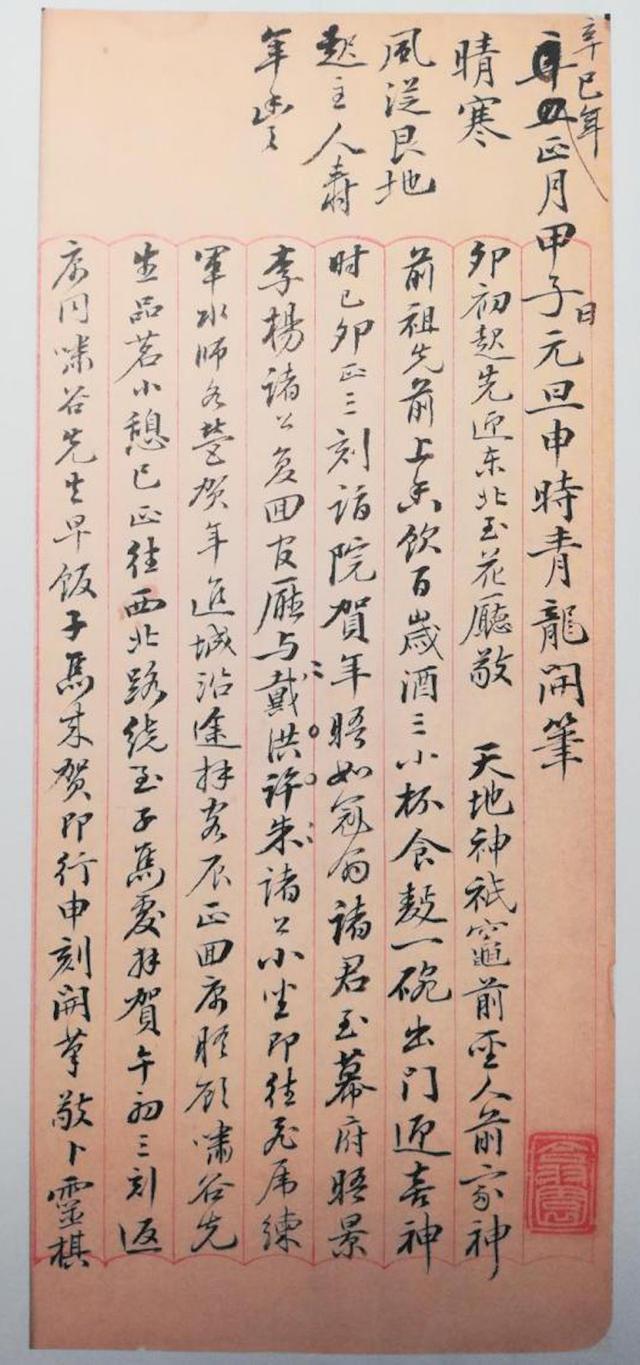 辛巳年
正月甲子日元旦申時青龍開筆
晴寒
風從艮地
起主人壽
年豊
卯初起先迎东北至花廳敬 天地神祇竈前聖人前家神
前祖先前上香飲百歲酒三小杯食麪一碗出门迎喜神
时已卯正三刻詣院賀年晤如冠翁諸君至幕府晤景
李楊諸公复回官廳与戴洪许朱諸公小坐即往飛虎練
軍水师各營贺年進城沿途拜客辰正回寓晤顾嘯谷先
生品茗小憩巳正往西北路绕至子馬處拜賀午初三刻返
寓同嘯谷先生早饭子馬来贺即行申刻開筆敬卜靈棋